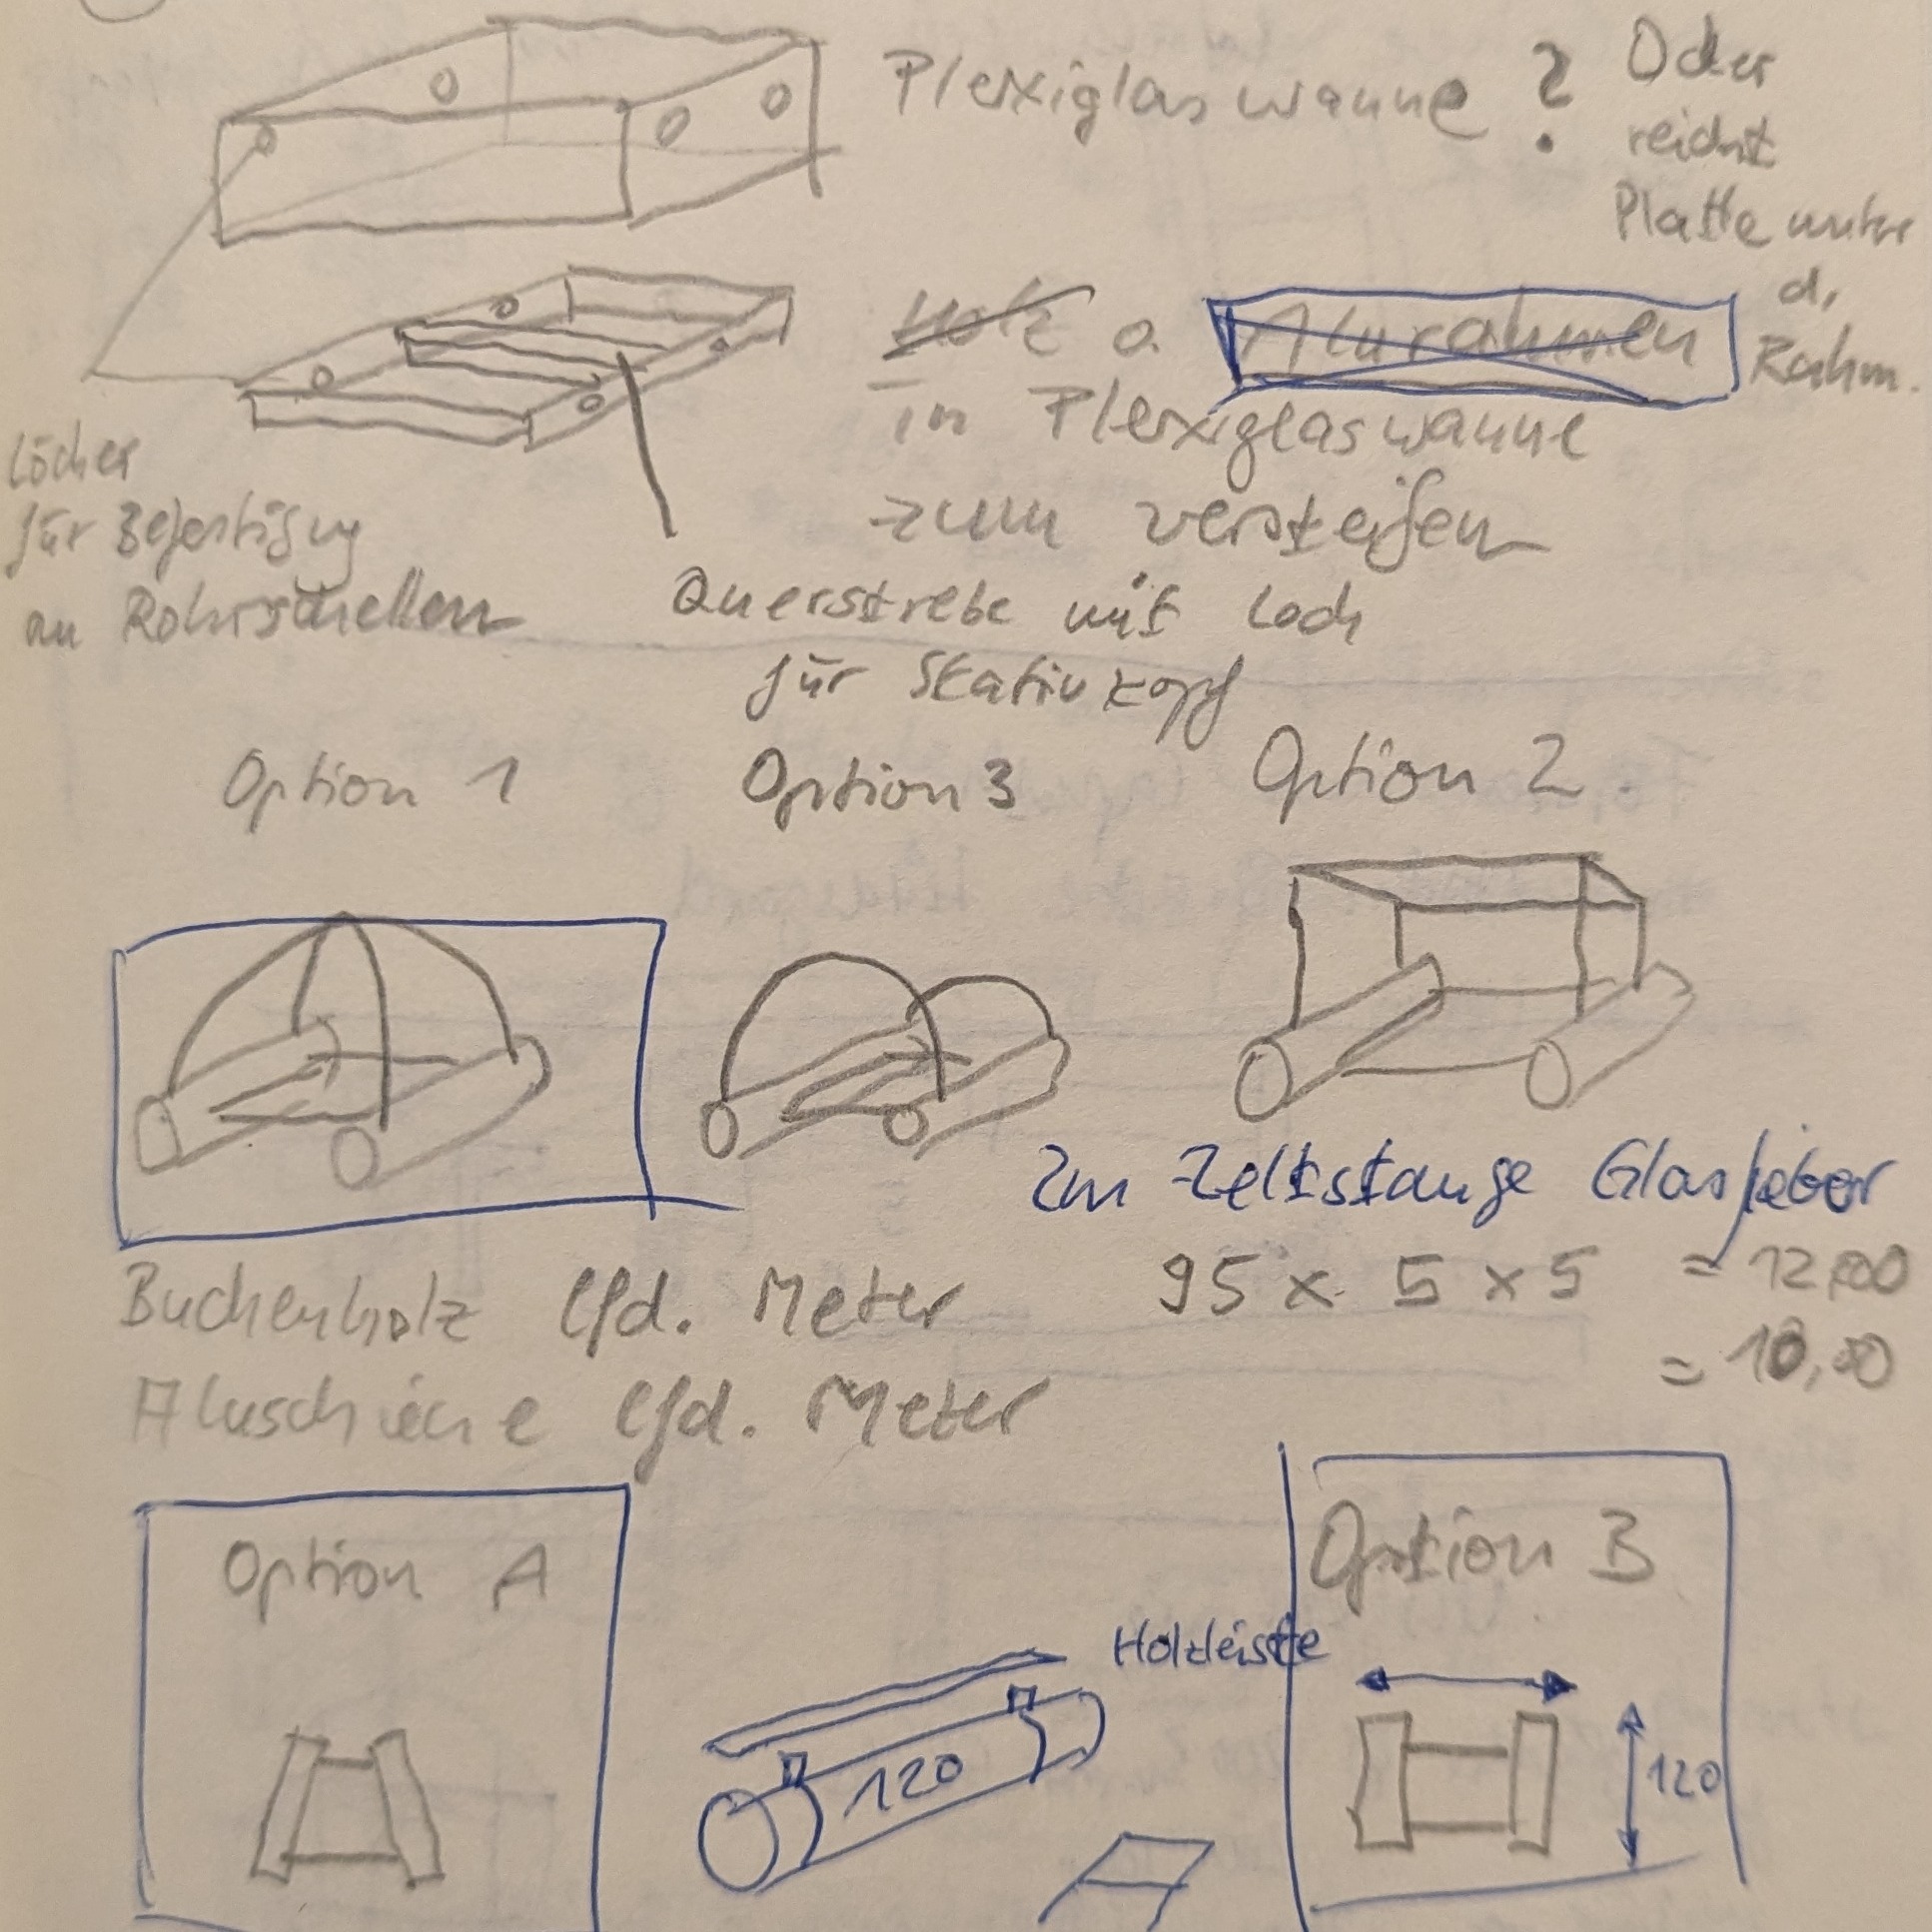 Plexiglaswanne ?
Oder
reicht
Platte unter
d.
Rahm.
Holz o. Alurahmen
in Plexiglaswanne
zum versteifen
Löcher
für Befestigung
an Rohrschellen
Querstrebe mit Loch
für Stativkopf
Option 1
Option 3
Option 2
2m Zeltstange Glasfieber
Buchenholz lfd. Meter 95 x 5 x 5 = 12,00
= 10,00
Aluschiene lfd. Meter
Option A
Option B
Holzleiste
120
120